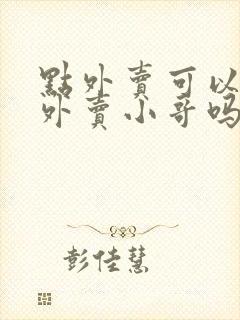 點外賣可以
外賣小哥嗎
彭佳慧